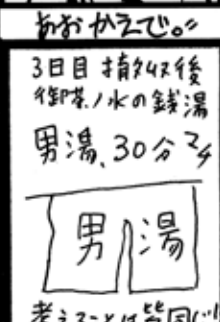 あおかえで。
3日目 撤収後
御茶ノ水の銭湯
男湯、30分マチ
男湯
考えることは皆同じ